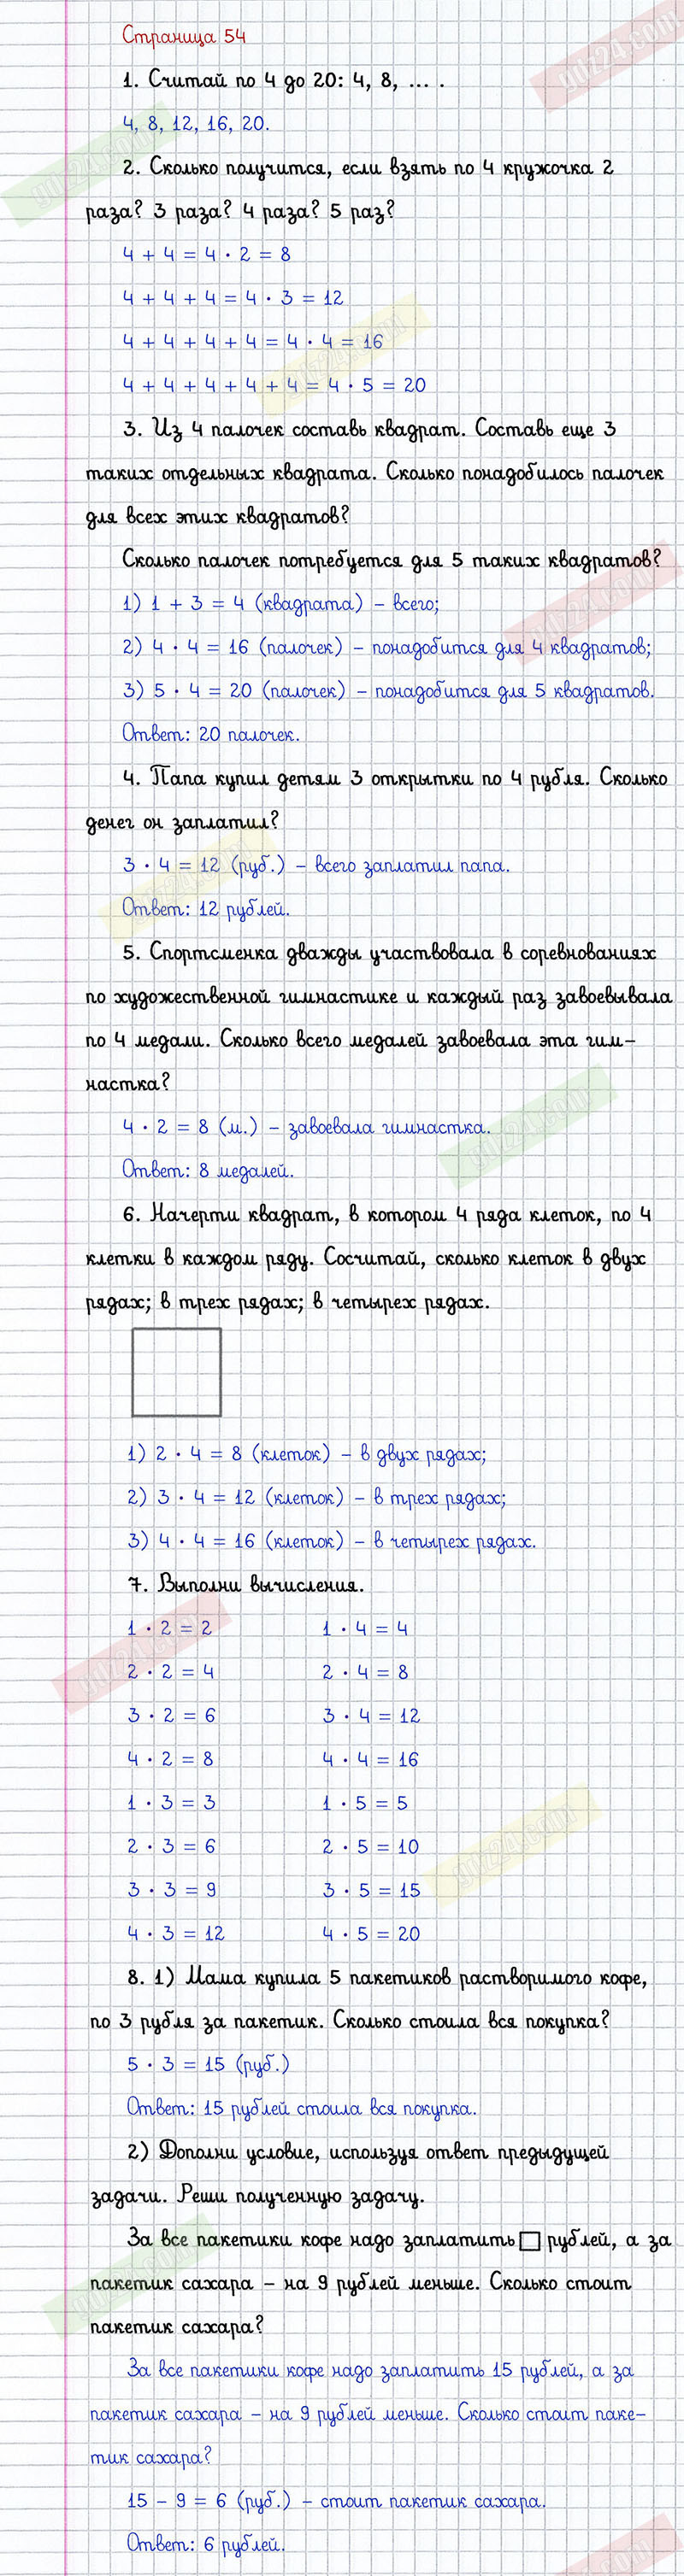 Страница 54
1. Считай по 4 до 20: 4, 8, ... .
4, 8, 12, 16, 20.
2. Сколько получится, если взять по 4 кружочка 2
раза? 3 раза? 4 раза? 5 раз?
4 + 4 = 4 · 2 = 8
4 + 4 + 4 = 4 · 3 = 12
4 + 4 + 4 + 4 = 4 · 4 = 16
4 + 4 + 4 + 4 + 4 = 4 · 5 = 20
3. Из 4 палочек составь квадрат. Составь еще 3
таких отдельных квадрата. Сколько понадобилось палочек
для всех этих квадратов?
Сколько палочек потребуется для 5 таких квадратов?
1) 1 + 3 = 4 (квадрата) – всего;
2) 4 · 4 = 16 (палочек) – понадобится для 4 квадратов;
3) 5 · 4 = 20 (палочек) – понадобится для 5 квадратов.
Ответ: 20 палочек.
4. Папа купил детям 3 открытки по 4 рубля. Сколько
денег он заплатил?
3 · 4 = 12 (руб.) – всего заплатил папа.
Ответ: 12 рублей.
5. Спортсменка дважды участвовала в соревнованиях
по художественной гимнастике и каждый раз завоевывала
по 4 медали. Сколько всего медалей завоевала эта гим-
настка?
4 · 2 = 8 (м.) – завоевала гимнастка.
Ответ: 8 медалей.
6. Начерти квадрат, в котором 4 ряда клеток, по 4
клетки в каждом ряду. Сосчитай, сколько клеток в двух
рядах; в трех рядах; в четырех рядах.
1) 2 · 4 = 8 (клеток) – в двух рядах;
2) 3 · 4 = 12 (клеток) – в трех рядах;
3) 4 · 4 = 16 (клеток) – в четырех рядах.
7. Выполни вычисления.
1 · 2 = 2 1 · 4 = 4
2 · 2 = 4 2 · 4 = 8
3 · 2 = 6 3 · 4 = 12
4 · 2 = 8 4 · 4 = 16
1 · 3 = 3 1 · 5 = 5
2 · 3 = 6 2 · 5 = 10
3 · 3 = 9 3 · 5 = 15
4 · 3 = 12 4 · 5 = 20
8. 1) Мама купила 5 пакетиков растворимого кофе,
по 3 рубля за пакетик. Сколько стоила вся покупка?
5 · 3 = 15 (руб.)
Ответ: 15 рублей стоила вся покупка.
2) Дополни условие, используя ответ предыдущей
задачи. Реши полученную задачу.
За все пакетики кофе надо заплатить □ рублей, а за
пакетик сахара – на 9 рублей меньше. Сколько стоит
пакетик сахара?
За все пакетики кофе надо заплатить 15 рублей, а за
пакетик сахара – на 9 рублей меньше. Сколько стоит паке-
тик сахара?
15 – 9 = 6 (руб.) – стоит пакетик сахара.
Ответ: 6 рублей.